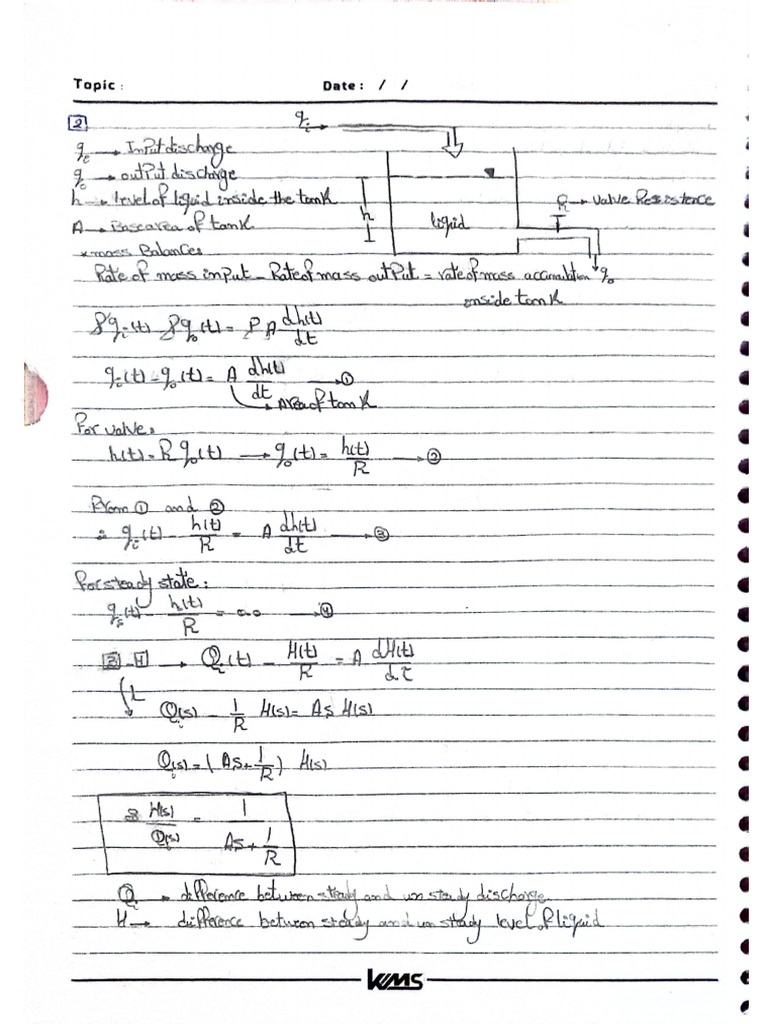 Topic :
Date : / /
2
qᵢ →
qᵢ → Input discharge
q₀ → output discharge
h → level of liquid inside the tank
R → valve Resistence
A → Base area of tank
h
liquid
* mass Balance:
Rate of mass input - Rate of mass output = rate of mass accumulation
inside tank
q₀
ρqᵢ(t) - ρq₀(t) = ρ A dh(t)/dt
qᵢ(t) - q₀(t) = A dh(t)/dt → ①
Area of tank
For valve:
h(t) = R q₀(t) → q₀(t) = h(t)/R → ②
From ① and ②
∴ qᵢ(t) - h(t)/R = A dh(t)/dt → ③
For steady state:
qᵢ(t) - h(t)/R = 0.0 → ④
3 - 4 → Qᵢ(t) - H(t)/R = A dH(t)/dt
L
Qᵢ(s) - 1/R H(s) = As H(s)
Qᵢ(s) = (As + 1/R) H(s)
∴ H(s)/Qᵢ(s) = 1/(As + 1/R)
Qᵢ → difference between steady and un steady discharge
H → difference between steady and un steady level of liquid
KMS